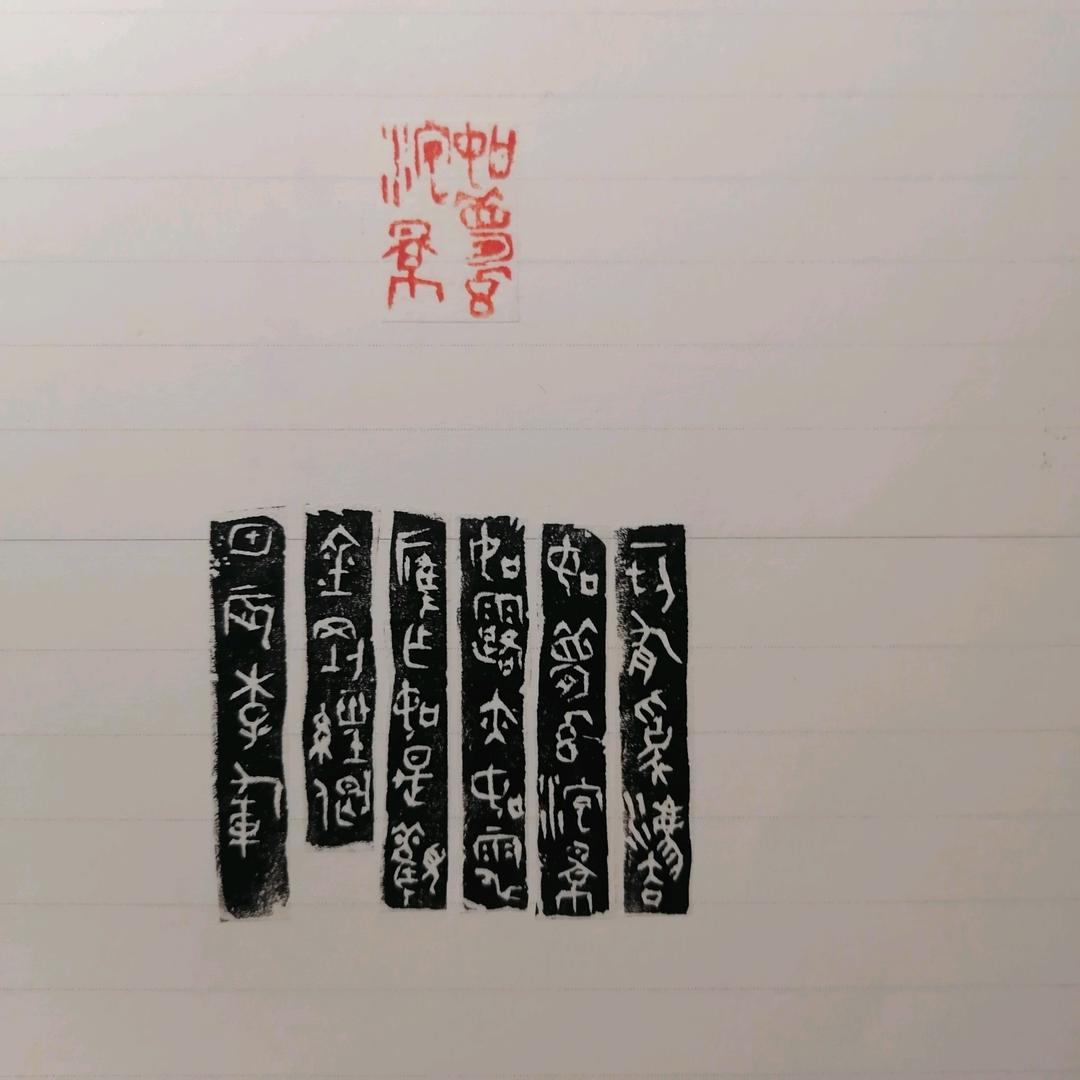 如夢幻
泡影
一切有為法
如夢幻泡影
如露亦如電
應作如是觀
金剛經偈
李軍